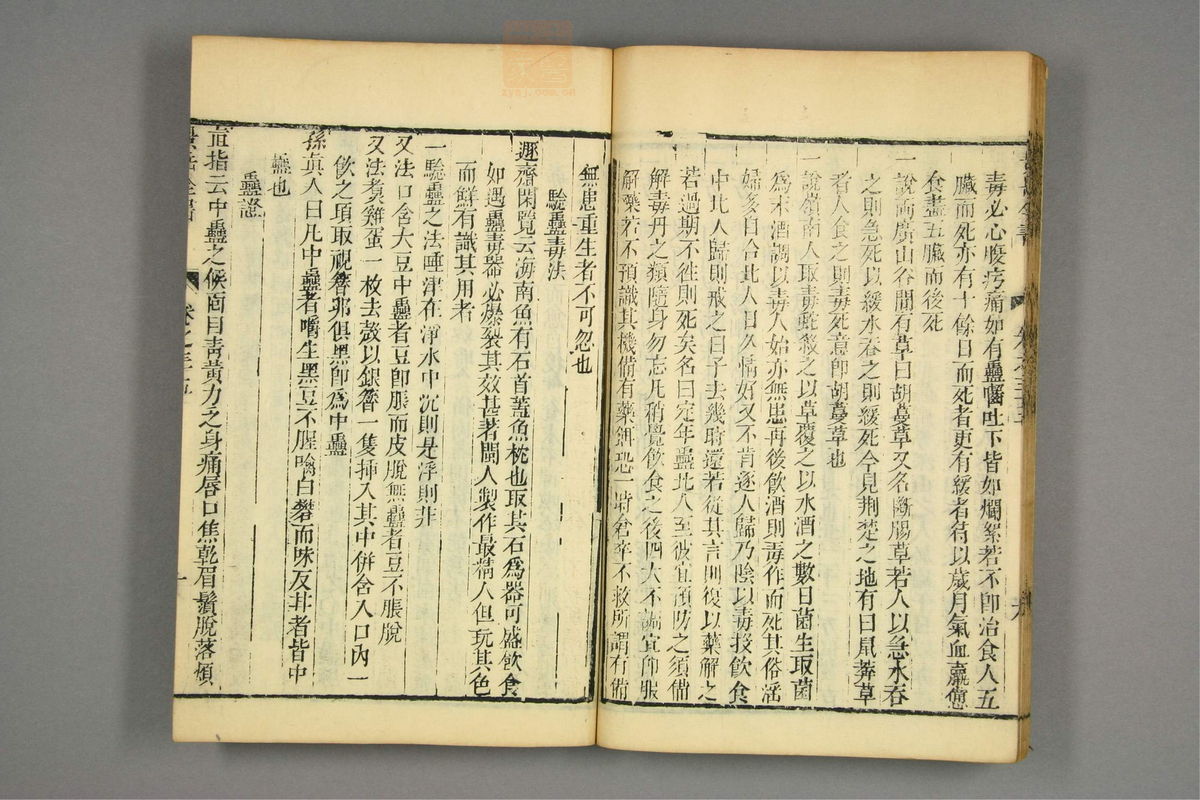 毒必心腹疞痛如有蟲嚙吐下皆如爛絮若不卽治食人五
臟而死亦有十餘日而死者更有緩者待以歲月氣血羸憊
食盡五臟而後死
一說兩廣山谷間有草曰胡蔓草又名斷腸草若人以急水吞
之則急死以緩水吞之則緩死今見荆楚之地有曰鼠莽草
者人食之則毒死意卽胡蔓草也
一說嶺南人取毒蛇殺之以草覆之以水洒之數日菌生取菌
爲末酒調以毒人始亦無患再後飲酒則毒作而死其俗淫
婦多自合北人日久情好又不肯逐人歸乃陰以毒投飲食
中北人歸則戒之曰子去幾時還若從其言則復以藥解之
若過期不徃則死矣名曰定年蠱北人至彼宜預防之須備
解毒丹之類隨身勿忘凡稍覺飲食之後四大不調宜仰服
解藥若不預識其機備有藥餌恐一時倉卒不救所謂有備
無患重生者不可忽也
騐蠱毒法
遯齋閑覽云海南魚有石首蓋魚枕也取其石爲器可盛飲食
如遇蠱毒器必爆裂其效甚著閩人製作最精人但玩其色
而鮮有識其用者
一騐蠱之法唾津在淨水中沉則是浮則非
又法口含大豆中蠱者豆卽脹而皮脫無蠱者豆不脹脫
又法煮雞蛋一枚去殼以銀簪一隻揷入其中併含入口內一
飲之頃取視簪卵俱黑卽爲中蠱
孫真人曰凡中蠱者嚼生黑豆不腥噙白礬而味反甘者皆中
蠱也
蠱證
直指云中蠱之候面目靑黃力乏身痛唇口焦乾眉鬚脫落煩